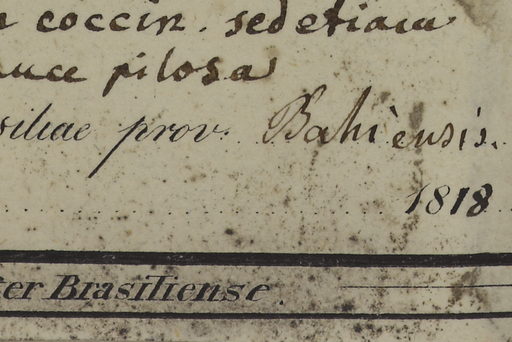 coccin. sed etiam
pilosa
siliae prov. Bahiensis.
1818
ter Brasiliense.